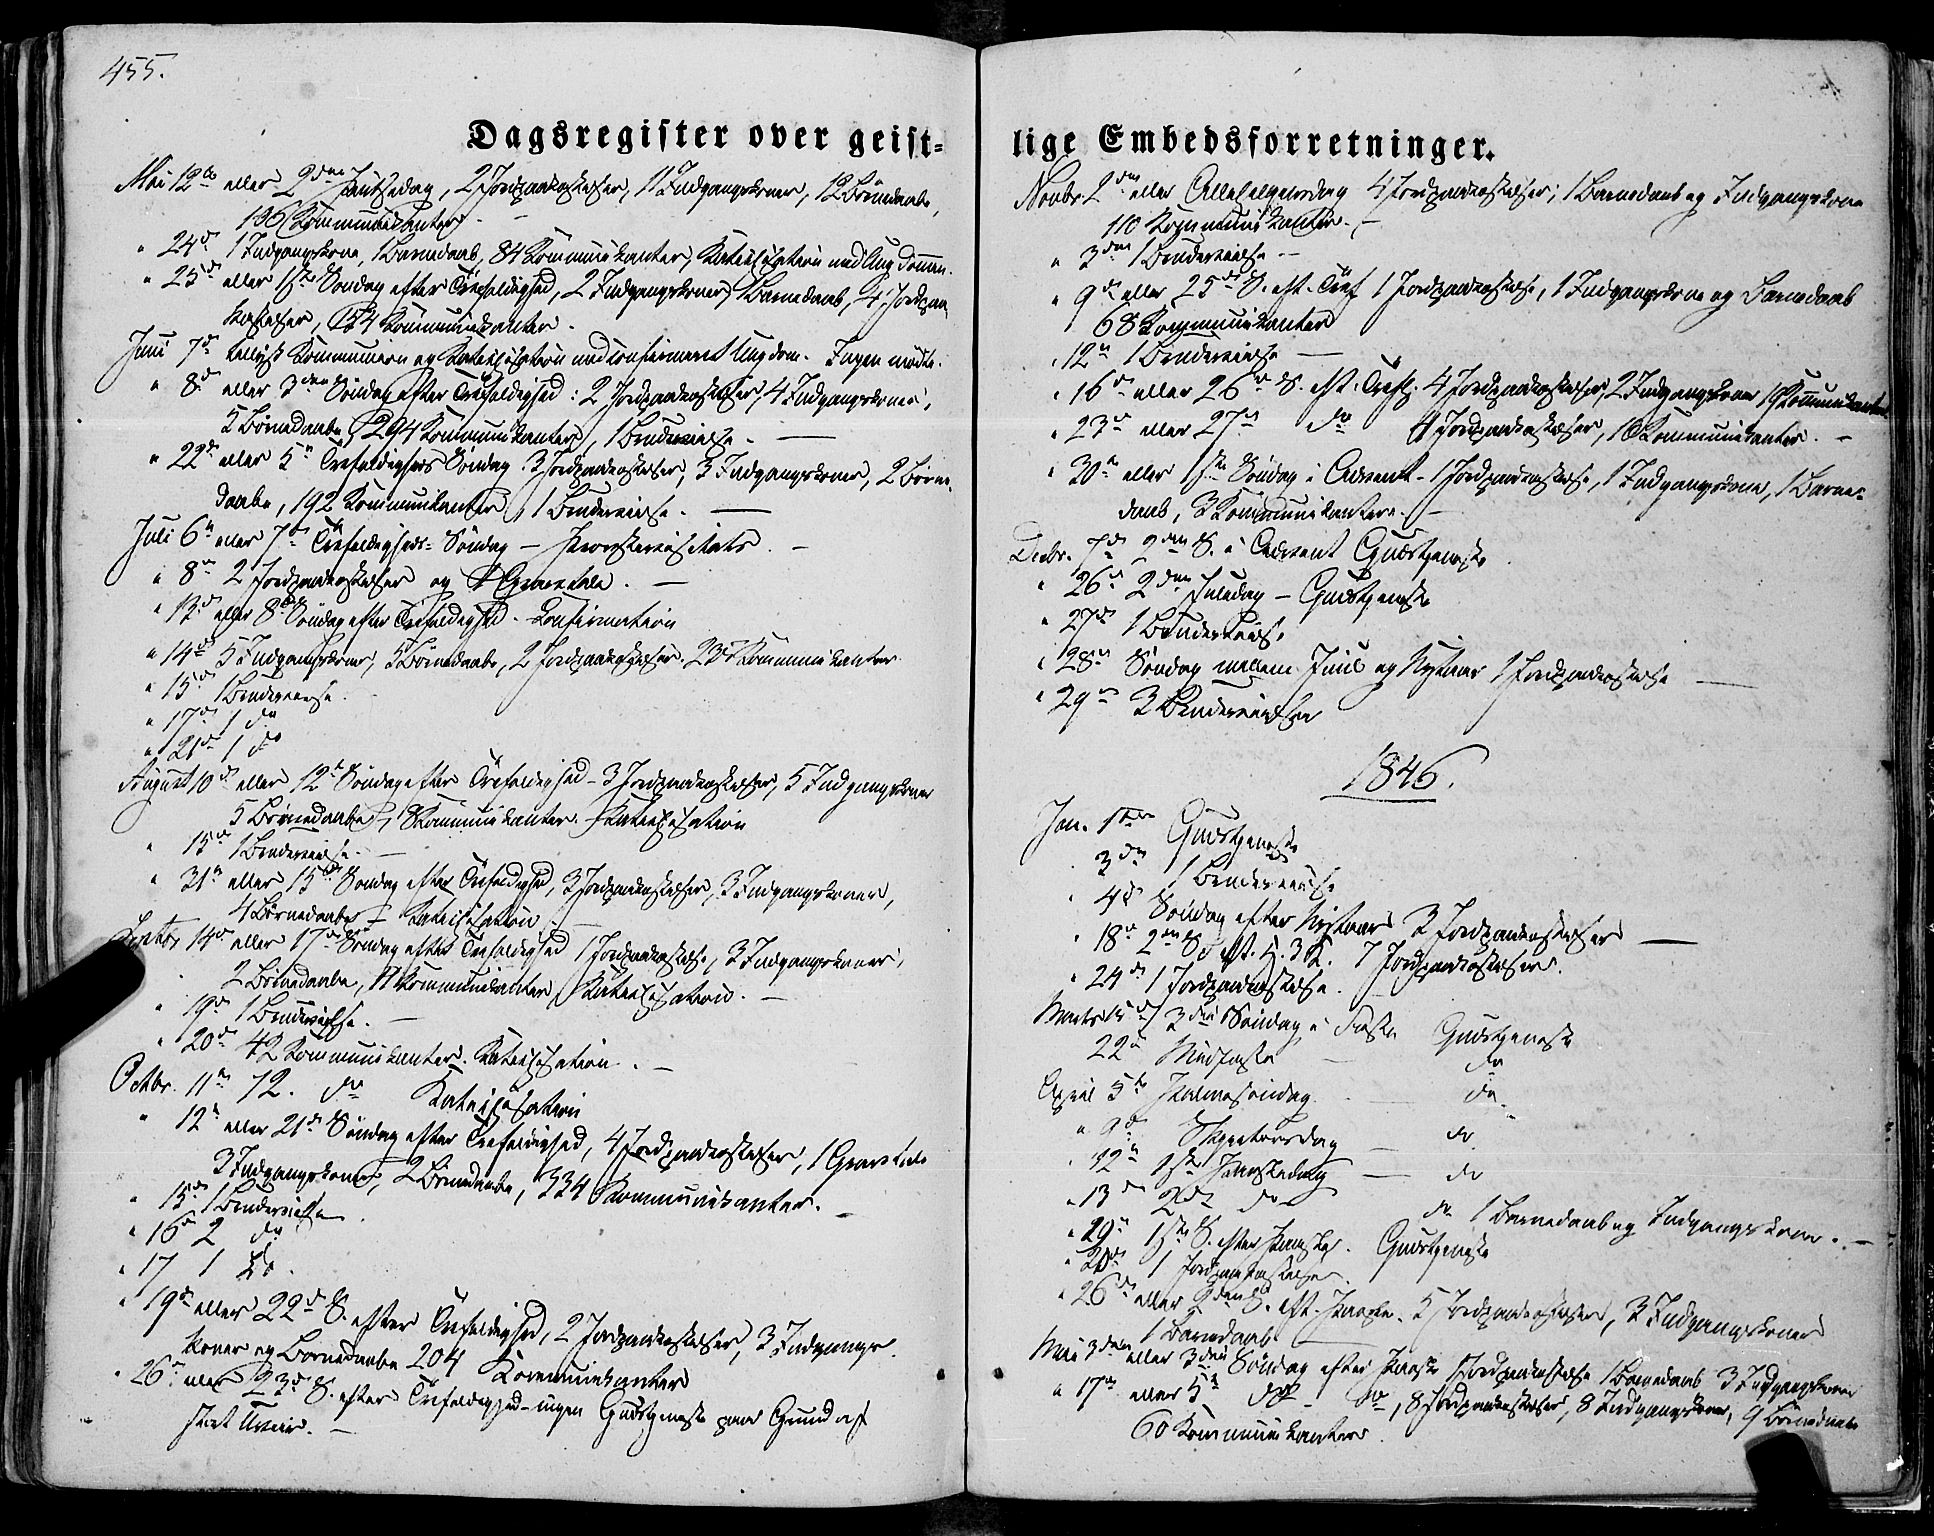 455.
Dagsregister over geist-
Mai 12te eller 2den Pintsedag, 2 Jordpaakastelser, 11 Indgangskoner, 12 Børnedaabe,
Kommunikanter.
" 24de 1 Indgangskone, 1 Barnedaab, 84 Kommunikanter, Katechisation med Ungdommen.
" 25de eller 1ste Søndag efter Trefoldighed, 2 Indgangskoner, 1 Barnedaab, 4 Jordpaa-
kastelser, 154 Kommunikanter.
Juni 7de Kommunion og Katechisation med confirmeret Ungdom. Ingen mødte.
" 8de eller 3den Søndag efter Trefoldighed: 2 Jordpaakastelser, 4 Indgangskoner,
5 Børnedaabe, 294 Kommunikanter, 1 Brudevielse.
" 22de eller 5te Trefoldigheds Søndag. 3 Jordpaakastelser, 3 Indgangskoner, 2 Børne-
daabe, 192 Kommunikanter, 1 Brudevielse.
Juli 6te eller 7de Trefoldigheds-Søndag – Provstevisitats.
" 8de 2 Jordpaakastelser og 1 Gravtale.
" 13de eller 8de Søndag efter Trefoldighed – Confirmation
" 14de 5 Indgangskoner, 5 Børnedaabe, 2 Jordpaakastelser. Kommunikanter
" 15de 1 Brudevielse.
" 17de 1 do
" 21de 1 do
August 10de eller 12te Søndag efter Trefoldighed – 3 Jordpaakastelser, 5 Indgangskoner
5 Børnedaabe, Kommunikanter. Katechisation
" 15de 1 Brudevielse.
" 31te eller 15de Søndag efter Trefoldighed, 3 Jordpaakastelser, 3 Indgangskoner,
4 Børnedaabe – Katechisation
Septbr 14de eller 17de Søndag efter Trefoldighed 1 Jordpaakastelse, 3 Indgangskoner,
2 Børnedaabe, Kommunikanter, Katechisation.
" 19de 1 Brudevielse.
" 20de 42 Kommunikanter. Katechisation.
Octbr. 11te 72. do Katechisation
" 12te eller 21de Søndag efter Trefoldighed, 4 Jordpaakastelser, 1 Gravtale
3 Indgangskoner, 2 Børnedaabe, 334 Kommunikanter.
" 15de 1 Brudevielse
" 16de 2 do
" 17 1 do.
" 19de eller 22de S. efter Trefoldighed, 2 Jordpaakastelser, 3 Indgangs-
koner og Børnedaabe 204 Kommunikanter
" 26de eller 23de S. efter Trefoldighed – ingen Gudstjeneste paa Grund af
Uveir.
lige Embedsforretninger.
Novbr 2den eller Allehelgensdag 4 Jordpaakastelser; 1 Barnedaab og Indgangskone
110 Kommunikanter.
" 3den 1 Brudevielse
" 9de eller 25de S. eft. Tref 1 Jordpaakastelse, 1 Indgangskone og Barnedaab
68 Kommunikanter
" 12te 1 Brudevielse
" 16de eller 26de S. eft. Tref. 4 Jordpaakastelser, 2 Indgangskoner Kommunikanter
" 23de eller 27de do Jordpaakastelser, Kommunikanter.
" 30te eller 1ste Søndag i Advent – 1 Jordpaakastelse, 1 Indgangskone, 1 Barne-
daab, 3 Kommunikantere.
Decbr. 7de 2den S. i Advent Gudstjeneste
" 26de 2den Juledag – Gudstjeneste
" 27de 1 Brudevielse
" 28de Søndag mellem Juul og Nytaar 1 Jordpaakastelse
" 29de 3 Brudevielser
1846.
Jan. 1ste Gudstjeneste
3den 1 Brudevielse
" 4de Søndag efter Nytaar 3 Jordpaakastelser
" 18de 2den S. eft. H. 3 K. 7 Jordpaakastelser.
" 24de 1 Jordpaakastelse.
Marts 15de 3die Søndag i Faste Gudstjeneste
22de Midfaste do
April 5te Palmesøndag do.
" 9de Skjertorsdag do
" 12te 1ste Paaskedag do
" 13de 2den do do 1 Barnedaab og Indgangskone.
" 19de 1ste S. efter Paaske. Gudstjeneste
" 20de 1 Jordpaakastelse.
" 26de eller 2den S. eft. Paaske. 5 Jordpaakastelser, 3 Indgangskoner
1 Barnedaab
Mai 3den eller 3die Søndag efter Paaske Jordpaakastelse 1 Barnedaab 3 Indgangskoner
" 17de eller 5te do do, 8 Jordpaakastelser, 8 Indgangskoner, 9 Børnedaabe
60 Kommunikanter.